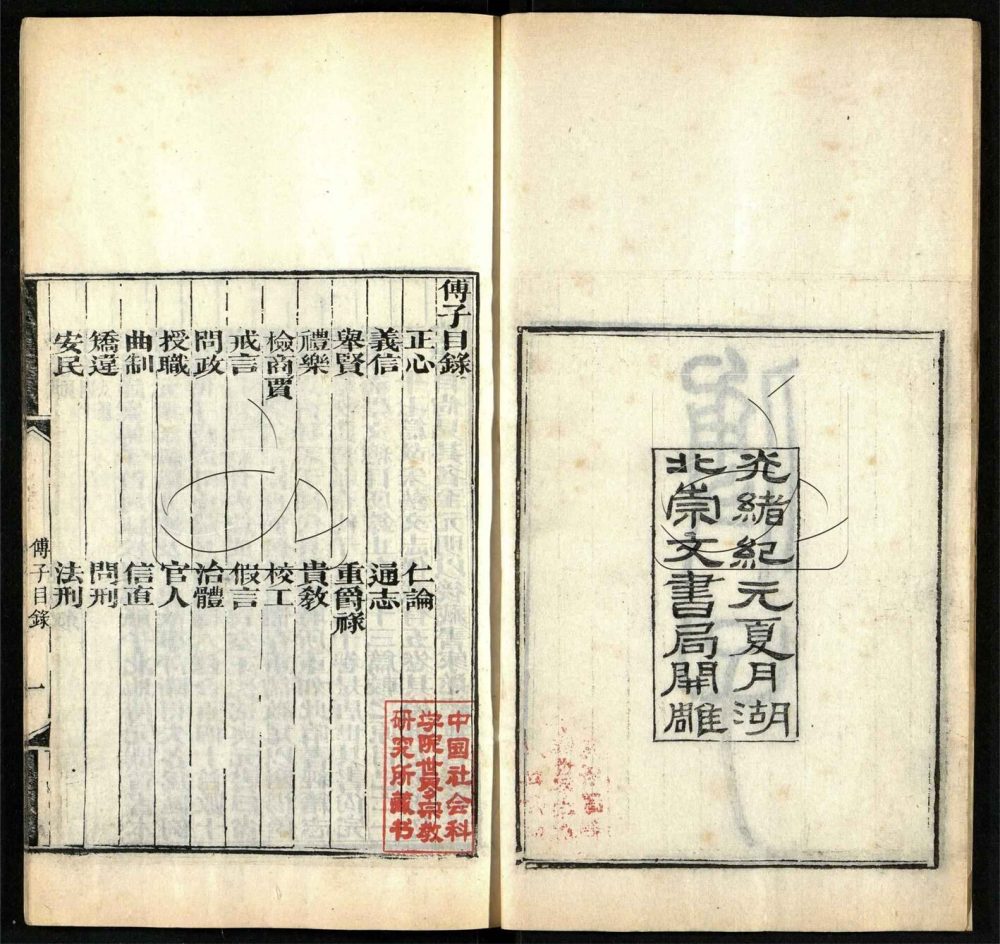 光緒紀元夏月湖
北崇文書局開雕
傅子目錄
正心 仁論
義信 通志
舉賢 重爵祿
禮樂 貴教
檢商賈 校工
戒言 假言
問政 治體
授職 官人
曲制 信直
矯違 問刑
安民 法刑
傅子目錄 一
中国社会科
学院世界宗教
研究所藏书